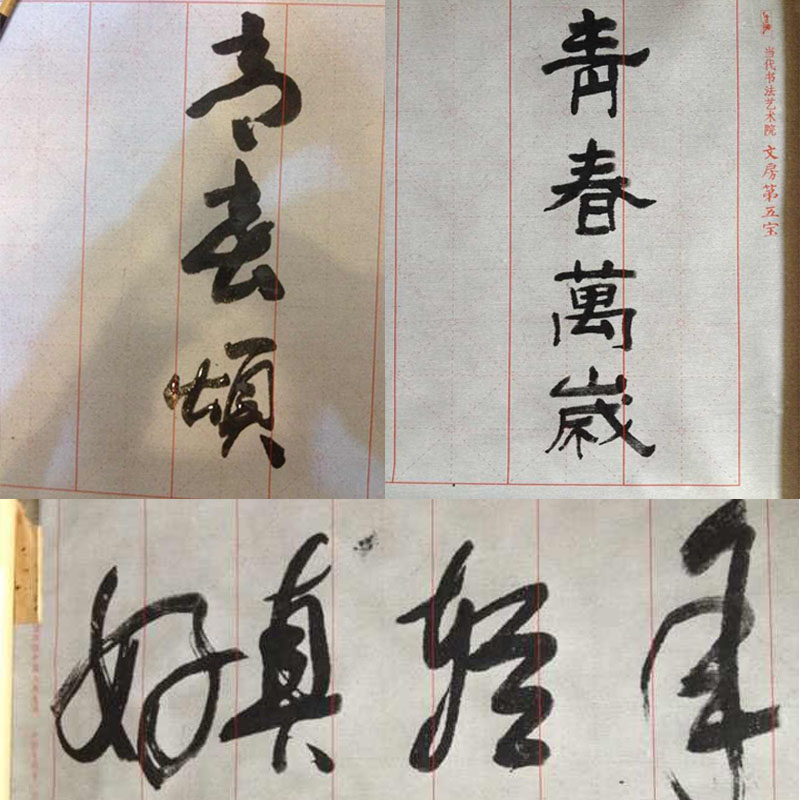 青春頌
青春萬歲
当代书法艺术院 文房第五宝
年轻真好